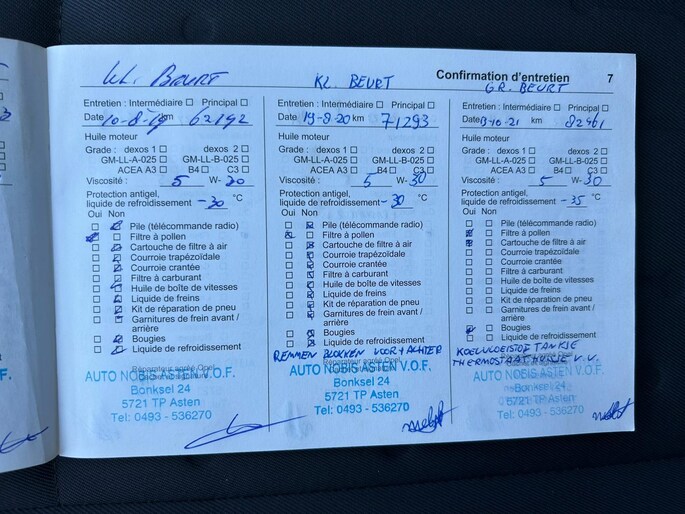 Confirmation d'entretien 7
KL. BEURT
Entretien : Intermédiaire Principal
Date 10-8-19 km 62192
Huile moteur
Grade : dexos 1 dexos 2
GM-LL-A-025 GM-LL-B-025
ACEA A3 B4 C3
Viscosité : 5 W- 30
Protection antigel,
liquide de refroidissement -30 °C
Oui Non
Pile (télécommande radio)
Filtre à pollen
Cartouche de filtre à air
Courroie trapézoïdale
Courroie crantée
Filtre à carburant
Huile de boîte de vitesses
Liquide de freins
Kit de réparation de pneu
Garnitures de frein avant /
arrière
Bougies
Liquide de refroidissement
AUTO NOBIS ASTEN V.O.F.
Bonksel 24
5721 TP Asten
Tel: 0493 - 536270
KL. BEURT
Entretien : Intermédiaire Principal
Date 19-8-20 km 71293
Huile moteur
Grade : dexos 1 dexos 2
GM-LL-A-025 GM-LL-B-025
ACEA A3 B4 C3
Viscosité : 5 W- 30
Protection antigel,
liquide de refroidissement -30 °C
Oui Non
Pile (télécommande radio)
Filtre à pollen
Cartouche de filtre à air
Courroie trapézoïdale
Courroie crantée
Filtre à carburant
Huile de boîte de vitesses
Liquide de freins
Kit de réparation de pneu
Garnitures de frein avant /
arrière
Bougies
Liquide de refroidissement
REMMEN BLOKKEN VOOR + ACHTER
Réparateur agréé Opel
AUTO NOBIS ASTEN V.O.F.
Bonksel 24
5721 TP Asten
Tel: 0493 - 536270
GR. BEURT
Entretien : Intermédiaire Principal
Date 13-10-21 km 82961
Huile moteur
Grade : dexos 1 dexos 2
GM-LL-A-025 GM-LL-B-025
ACEA A3 B4 C3
Viscosité : 5 W- 30
Protection antigel,
liquide de refroidissement -35 °C
Oui Non
Pile (télécommande radio)
Filtre à pollen
Cartouche de filtre à air
Courroie trapézoïdale
Courroie crantée
Filtre à carburant
Huile de boîte de vitesses
Liquide de freins
Kit de réparation de pneu
Garnitures de frein avant /
arrière
Bougies
Liquide de refroidissement
KOELVLOEISTOF TANKJE
THERMOSTAATHUISJE V.V.
AUTO NOBIS ASTEN V.O.F.
Bonksel 24
5721 TP Asten
Tel: 0493 - 536270